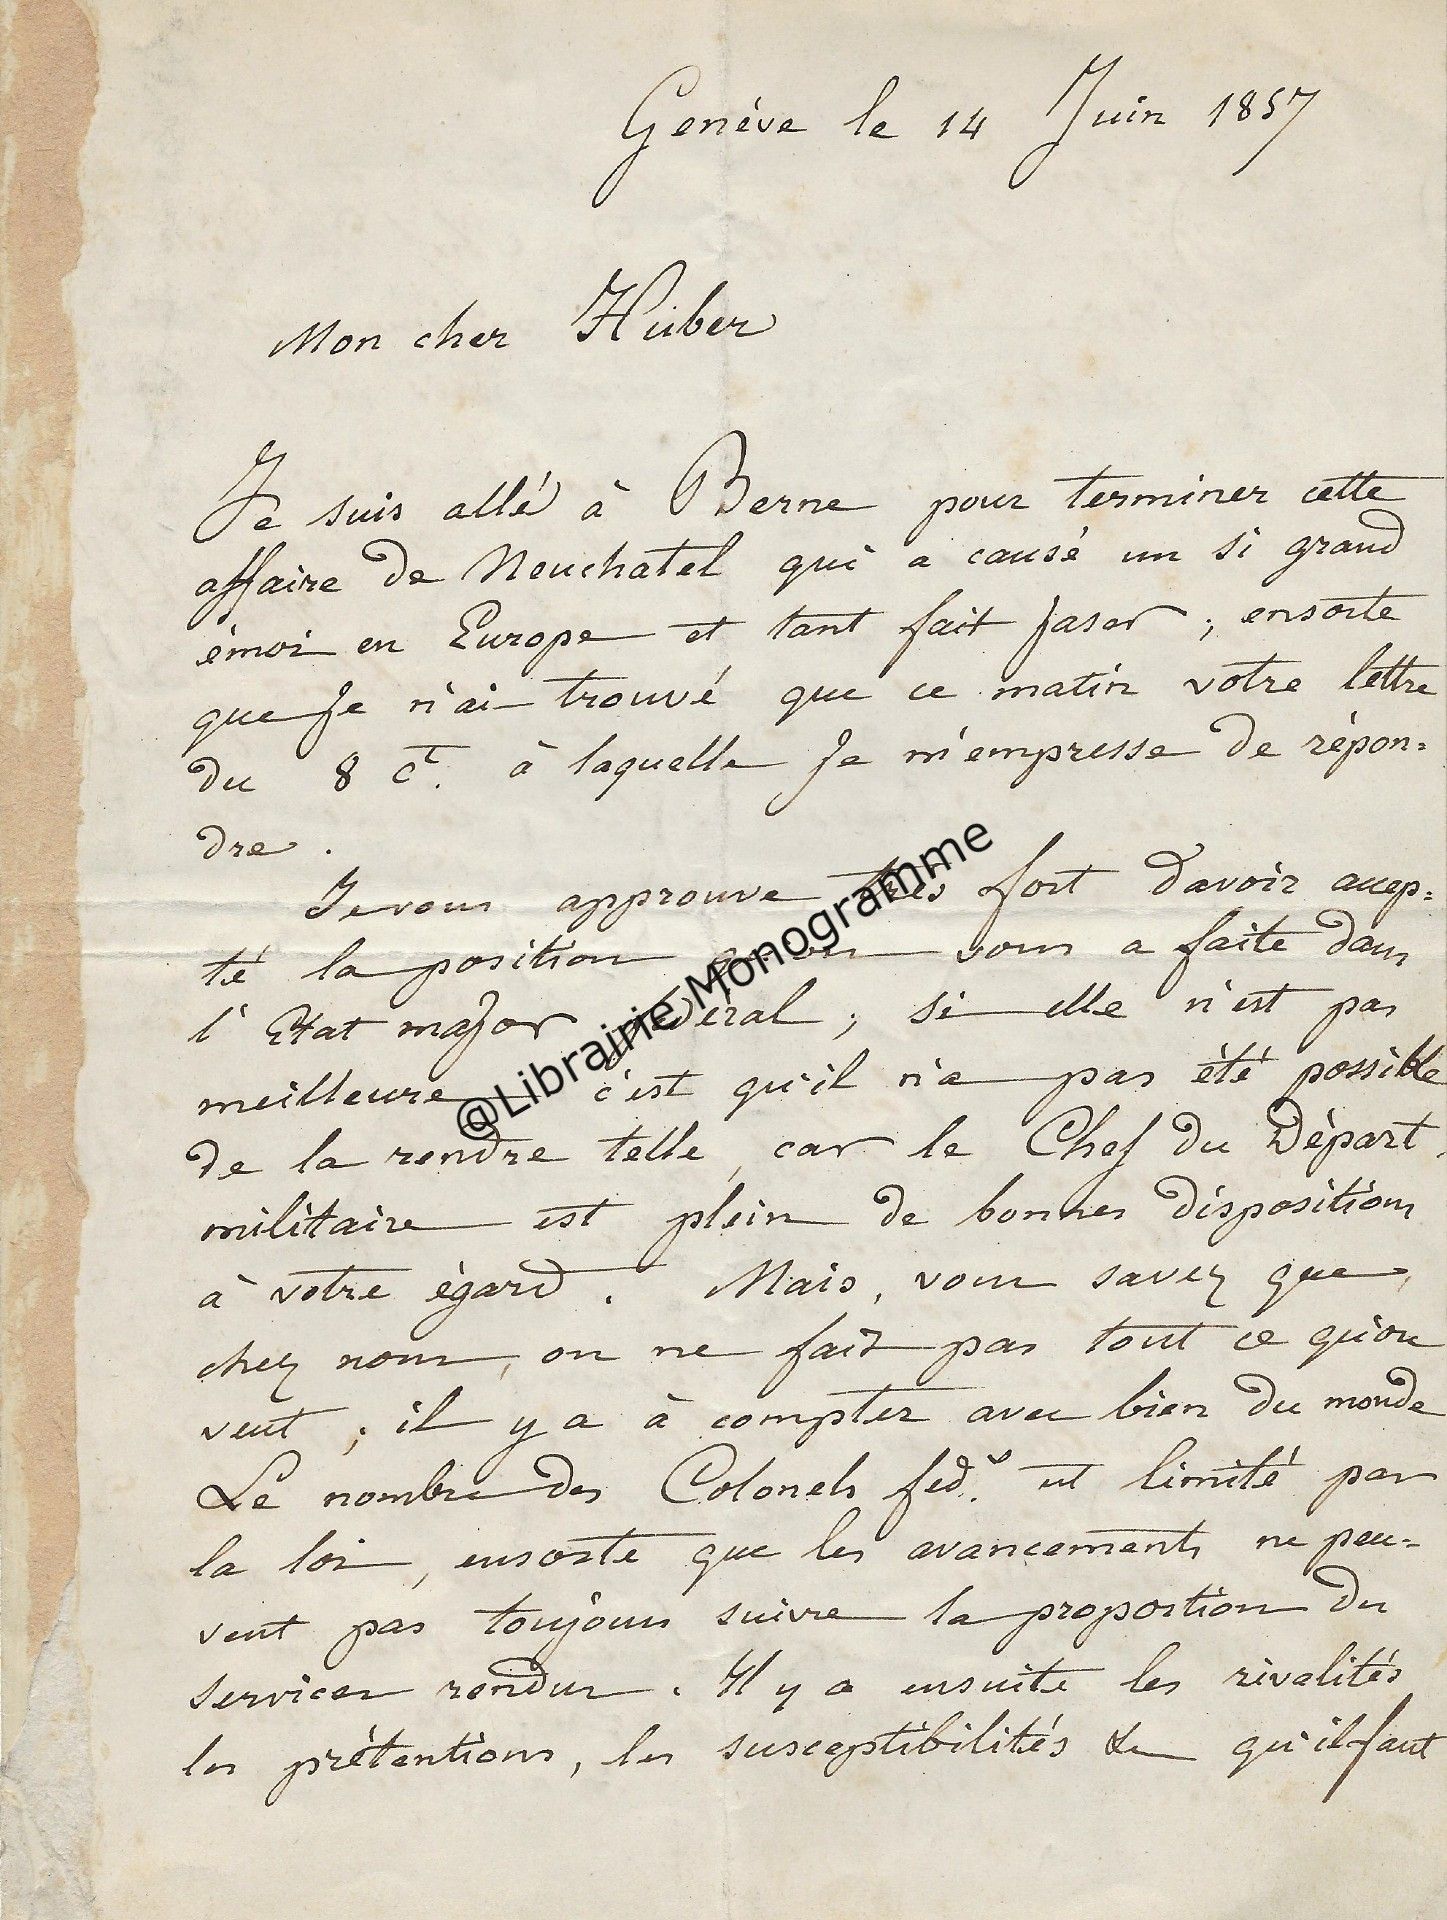 Genève le 14 Juin 1857
Mon cher Huber
Je suis allé à Berne pour terminer cette
affaire de Neuchatel qui a causé un si grand
émoi en Europe et tant fait jaser ; ensorte
que je n'ai trouvé que ce matin votre lettre
du 8 ct. à laquelle je m'empresse de répon=
dre .
Je vous approuve très fort d'avoir accep=
té la position qu'on vous a faite dans
l'Etat major fédéral ; si elle n'est pas
meilleure c'est qu'il n'a pas été possible
de la rendre telle, car le Chef du Départ.
militaire est plein de bonnes dispositions
à votre égard . Mais, vous savez que,
chez nous, on ne fait pas tout ce qu'on
veut ; il y a à compter avec bien du monde
Le nombre des Colonels fed. est limité par
la loi, ensorte que les avancements ne peu=
vent pas toujours suivre la proportion du
services rendus . Il y a ensuite les rivalités
les prétentions, les susceptibilités &c qu'il faut
@Librairie Monogramme